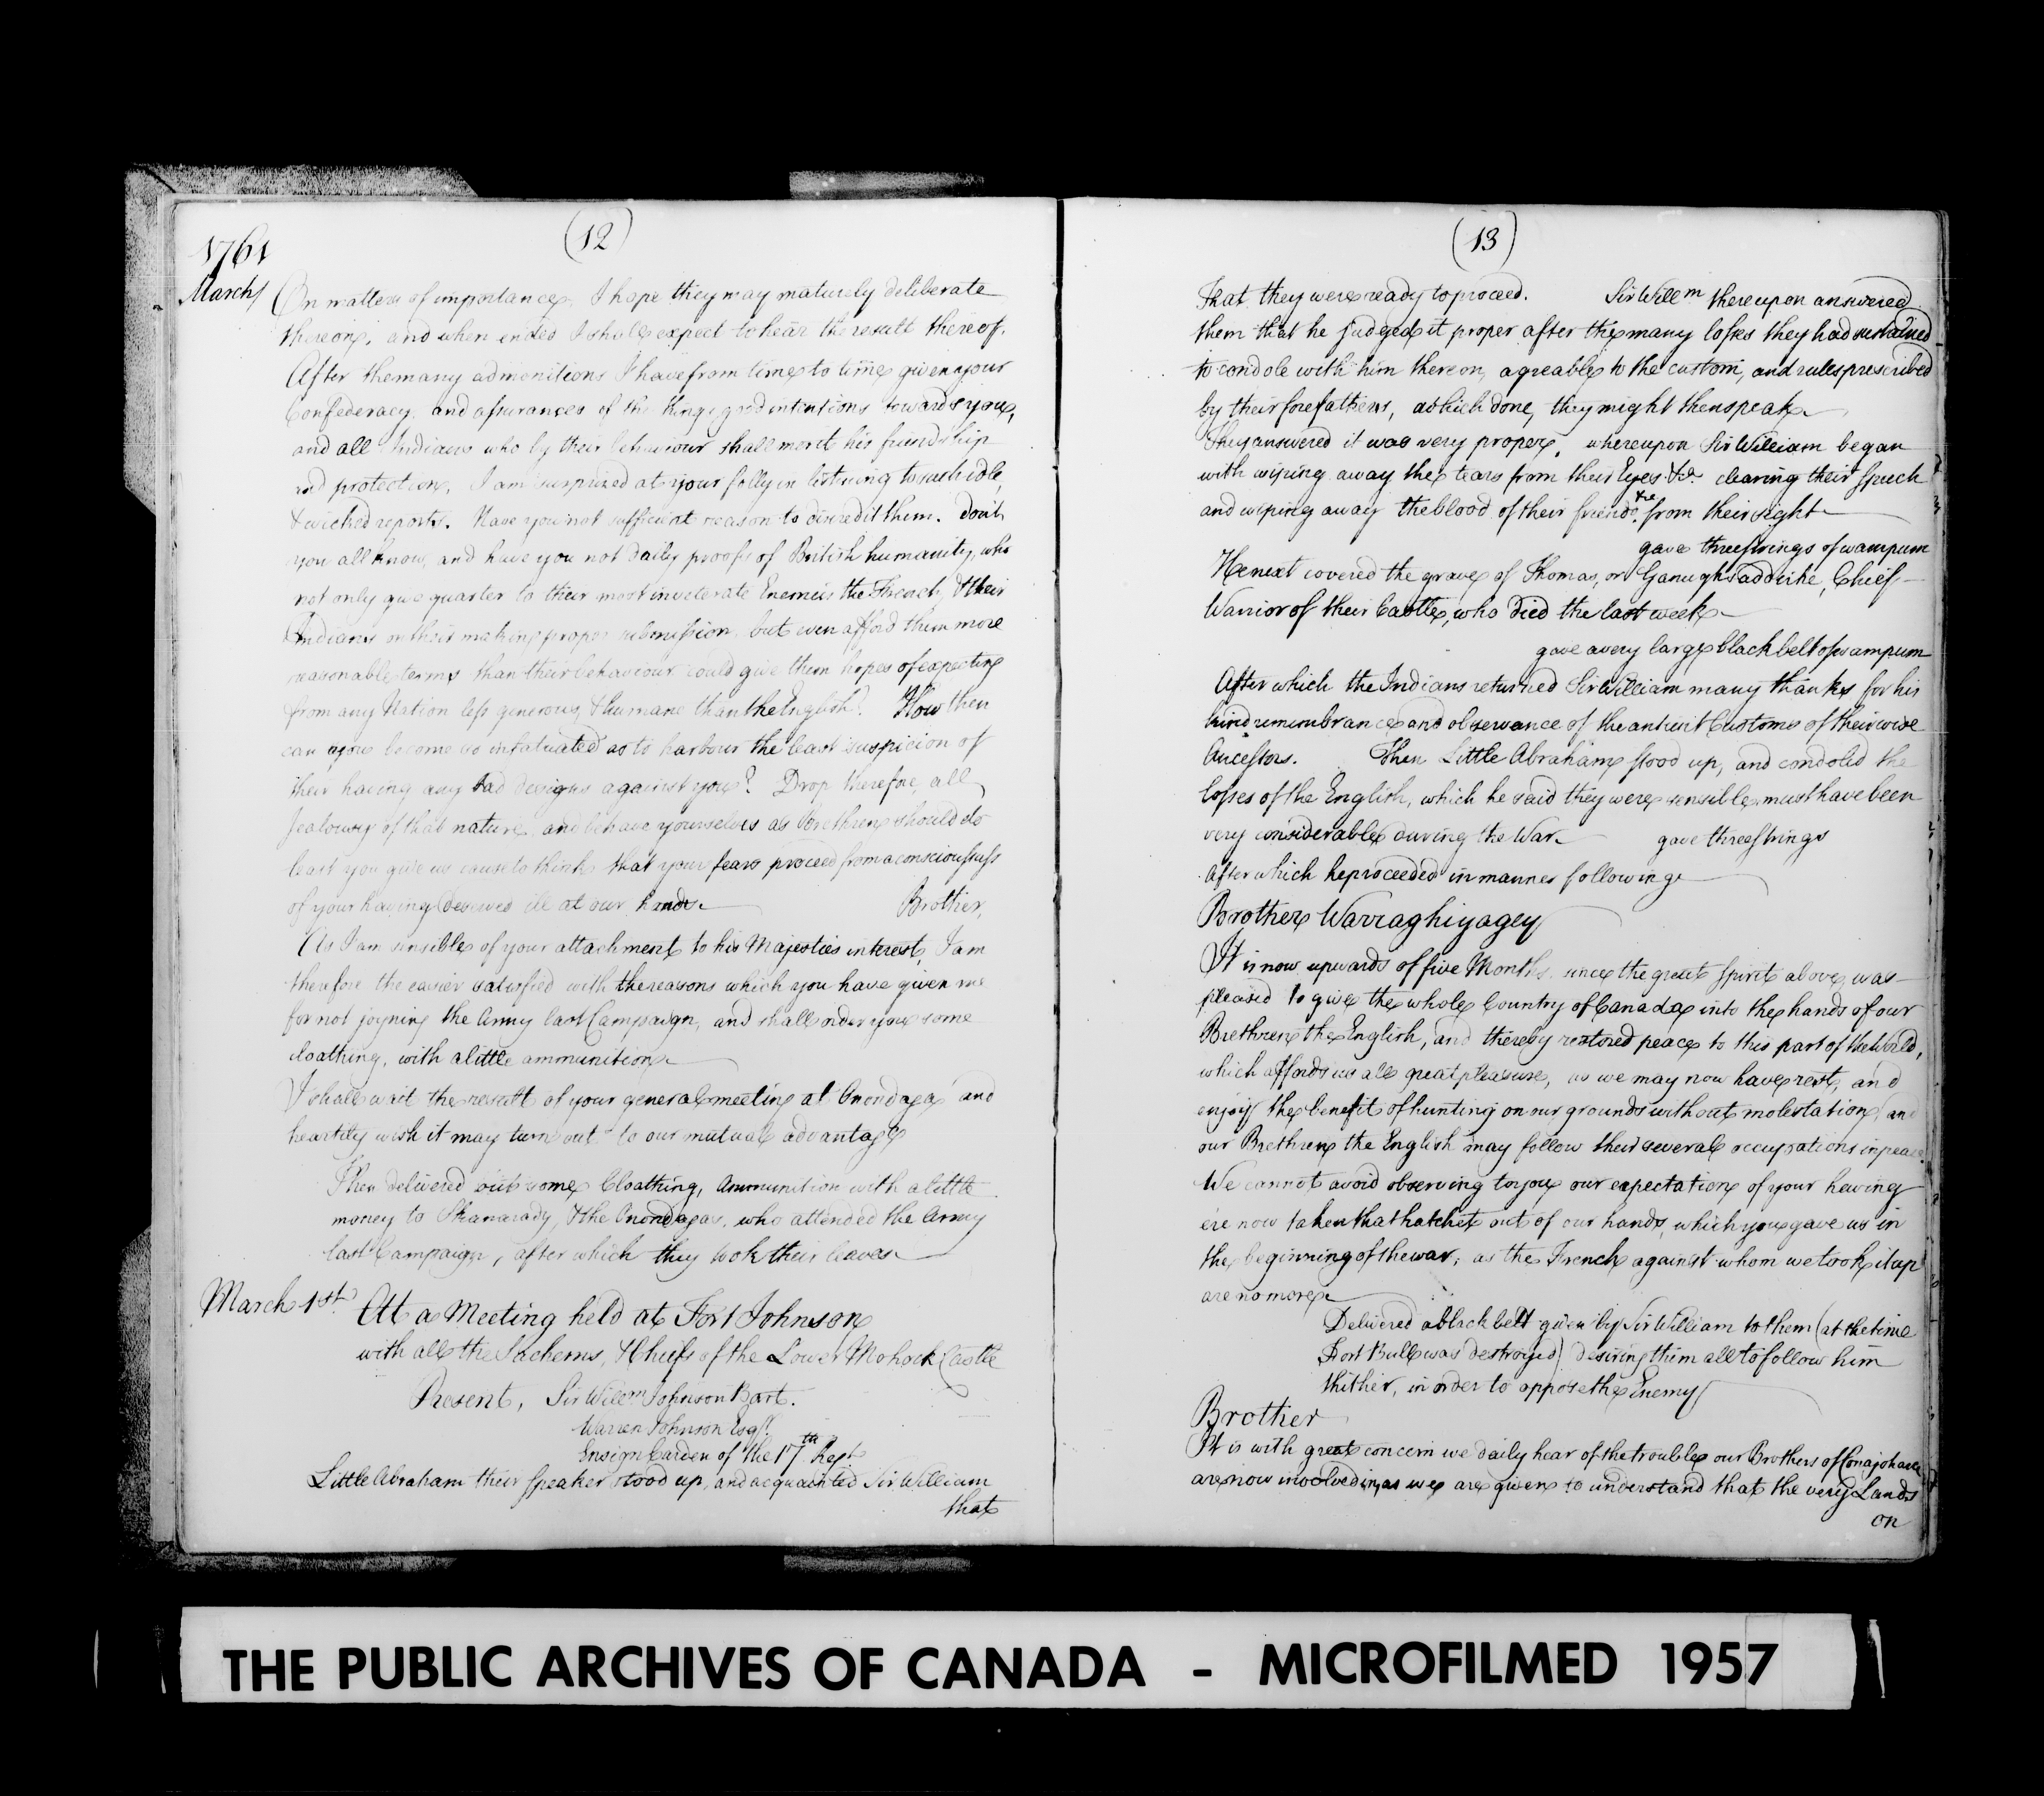 (12)
1761
March
On matters of importance, I hope they may maturely deliberate
thereon, and when ended I shall expect to hear the result thereof.
After the many admonitions I have from time to time given your
Confederacy, and assurances of the Kings good intentions towards you,
and all Indians who by their behaviour shall merit his friendship
and protection, I am surprized at your folly in listning to such idle,
& wicked reports. Have you not sufficient reason to discredit them. don't
you all know, and have you not daily proofs of British humanity, who
not only give quarter to their most inveterate Enemies the French, & their
Indians on their making proper submission, but even afford them more
reasonable terms than their behaviour could give them hopes of expecting
from any Nation less generous, & humane than the English? How then
can you become so infatuated as to harbour the least suspicion of
their having any bad designs against you? Drop therefore, all
Jealousy of that nature, and behave yourselves as Brethren should do
least you give us cause to think that your fears proceed from a consciousness
of your having deserved ill at our hands. Brother,
As I am sensible of your attachment to his Majesties interest, I am
therefore the easier satisfied with the reasons which you have given me
for not joyning the Army last Campaign, and shall order you some
cloathing, with a little ammunition
I shall wait the result of your general meeting at Onondaga and
heartily wish it may turn out to our mutual advantage
Then delivered out some Cloathing, Ammunition with a little
money to Skanarady, & the Onondagas, who attended the Army
last Campaign, after which they took their leaves
March 1st. Att a Meeting held at Fort Johnson
with all the Sachems, & Chiefs of the Lower Mohock Castle
Present, Sir Willm. Johnson Bart.
Warren Johnson Esqr.
Ensign Carden of the 17th Regt
Little Abraham their Speaker stood up, and acquainted Sir William
that
(13)
That they were ready to proceed. Sir Willm thereupon answered
them that he judged it proper after the many losses they had sustained
to condole with him thereon, agreable to the custom, and rules prescribed
by their forefathers, which done, they might then speak
They answered it was very proper, whereupon Sir William began
with wiping away the tears from their Eyes &ca clearing their Speech
and wiping away the blood of their friends &ca from their sight
gave three strings of wampum
He next covered the grave of Thomas, or Ganughsaddirhe, Chief
Warrior of their Castle, who died the last week
gave a very large black belt of wampum
After which the Indians returned Sir William many thanks for his
kind remembrance and observance of the antient Customs of their wise
Ancestors. Then Little Abraham stood up, and condoled the
losses of the English, which he said they were sensible must have been
very considerable during the War. gave three strings
After which he proceeded in manner following
Brother Warraghiyagey
It is now upwards of five Months, since the great Spirit above, was
pleased to give the whole Country of Canada into the hands of our
Brethren the English, and thereby restored peace to this part of the World,
which affords us all great pleasure, as we may now have rest, and
enjoy the benefit of hunting on our grounds without molestation, and
our Brethren the English may follow their several occupations in peace.
We cannot avoid observing to you our expectation of your having
ere now taken that hatchet out of our hands, which you gave us in
the beginning of the war, as the French against whom we took it up
are no more
Delivered a black belt given by Sir William to them (at the time
Fort Bull was destroyed) desiring them all to follow him
thither, in order to oppose the Enemy
Brother
It is with great concern we daily hear of the trouble our Brothers of Conajohare
are now involved in, as we are given to understand that the very Lands
on
THE PUBLIC ARCHIVES OF CANADA - MICROFILMED 1957